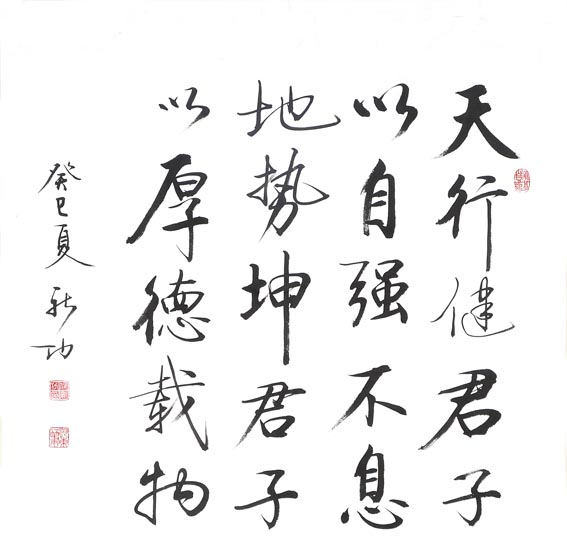 天行健君子
以自强不息
地势坤君子
以厚德载物
癸巳夏
功